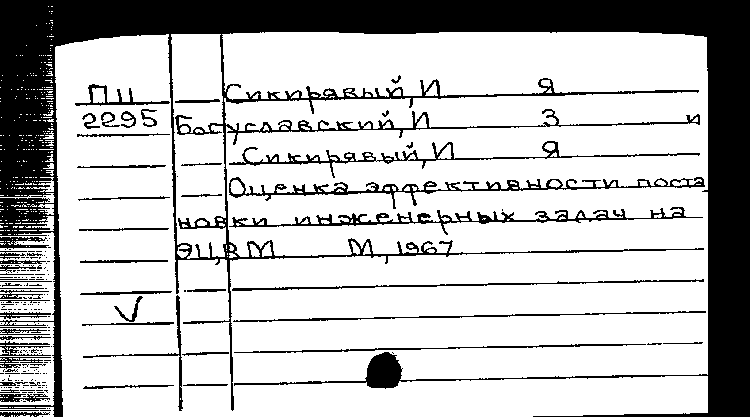 П11 Сикирявый, И Я
2295 Богуславский, И З и
Сикирявый, И Я
Оценка эффективности поста
новки инженерных задач на
ЭЦВМ М., 1967